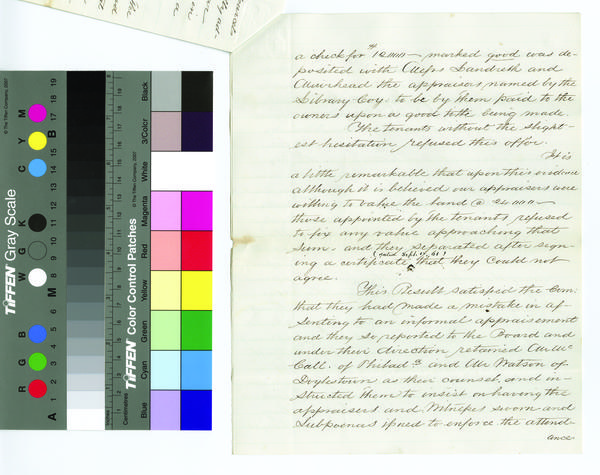 a check for $ — marked good was de-
posited with Messrs Landreth and
Muirhead the appraisers named by the
Library Coy. to be by them paid to the
owners upon as good title being made.
The tenants without the slight-
est hesitation refused this offer.
It is
a little remarkable that upon this evidence
although it is believed our appraisers were
willing to value the land @
those appointed by the tenants refused
to fix any value approaching that
sum. and they separated after sign-
(dated Sept. 61)
ing a certificate that they could not
agree.
This Result satisfied the Com.
that they had made a mistake in as-
senting to an informal appraisement
and they so reported to the Board and
under their direction retained Mr Mc
Call. of Philada and Mr Watson of
Doylestown as their counsel. and in-
structed them to insist on having the
appraisers and Witnesses sworn and
Subpoenas issued to enforce the attend-
ance
© The Tiffen Company, 2007
TIFFEN Gray Scale
R G B W G K C Y M
A 1 2 3 4 5 6 M 8 9 10 11 12 13 14 15 B 17 18 19
© The Tiffen Company, 2007
TIFFEN Color Control Patches
Centimetres
Blue
Cyan
Green
Yellow
Red
Magenta
White
3/Color
Black